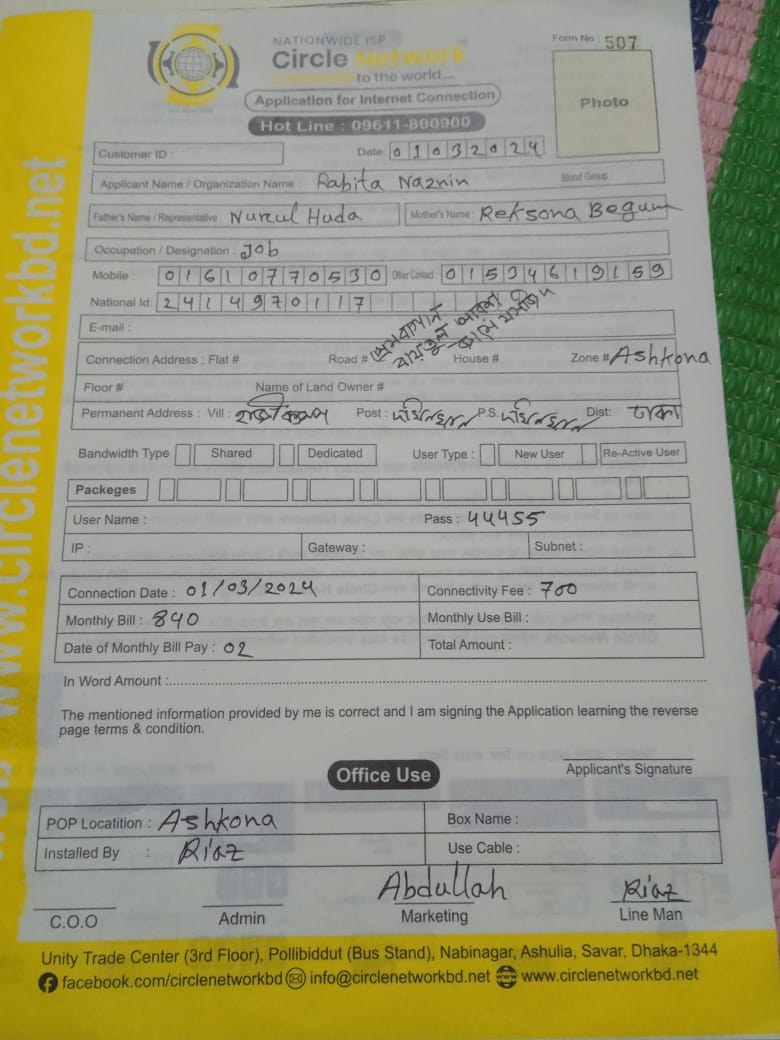 www.circlenetworkbd.net
NATIONWIDE ISP
Circle Network
connected to the world....
Application for Internet Connection
Hot Line : 09611-800900
Form No : 507
Photo
Customer ID :
Date: 01032024
Applicant Name / Organization Name : Rabita Naznin Blood Group
Father's Name / Representative Nurul Huda Mother's Name : Reksona Begum
Occupation / Designation : Job
Mobile : 01610770530 Other Contact 01534619159
National Id: 2414970117
E-mail :
Connection Address : Flat # Road # House # Zone # Ashkona
Floor # Name of Land Owner #
Permanent Address : Vill : Post : P.S. Dist: ঢাকা
Bandwidth Type Shared Dedicated User Type : New User Re-Active User
Packeges
User Name : Pass : 44455
IP : Gateway : Subnet :
Connection Date : 01/03/2024 Connectivity Fee : 700
Monthly Bill : 840 Monthly Use Bill :
Date of Monthly Bill Pay : 02 Total Amount :
In Word Amount :
The mentioned information provided by me is correct and I am signing the Application learning the reverse
page terms & condition.
Applicant's Signature
Office Use
POP Locatition : Ashkona Box Name :
Installed By : Riaz Use Cable :
Abdullah Riaz
C.O.O Admin Marketing Line Man
Unity Trade Center (3rd Floor), Pollibiddut (Bus Stand), Nabinagar, Ashulia, Savar, Dhaka-1344
facebook.com/circlenetworkbd info@circlenetworkbd.net www.circlenetworkbd.net